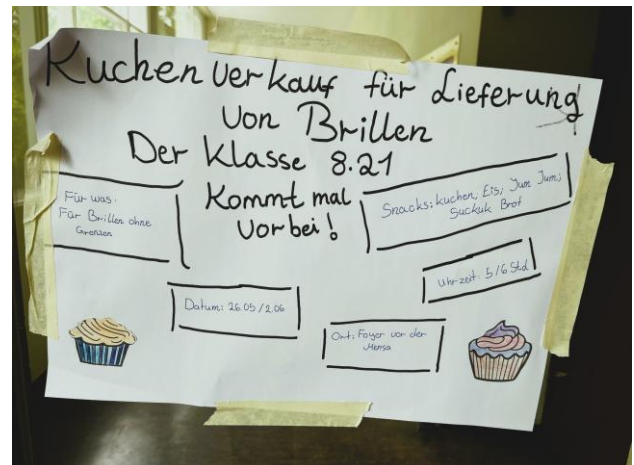 Kuchenverkauf für Lieferung
von Brillen
Der Klasse 8.21
Kommt mal
vorbei!
Für was:
Für Brillen ohne
Grenzen
Snacks: kuchen, Eis, Yum Yum,
Suckuk Brot
Uhrzeit: 5/6 Std
Datum: 26.05/2.06
Ort: Foyer vor der
Mensa